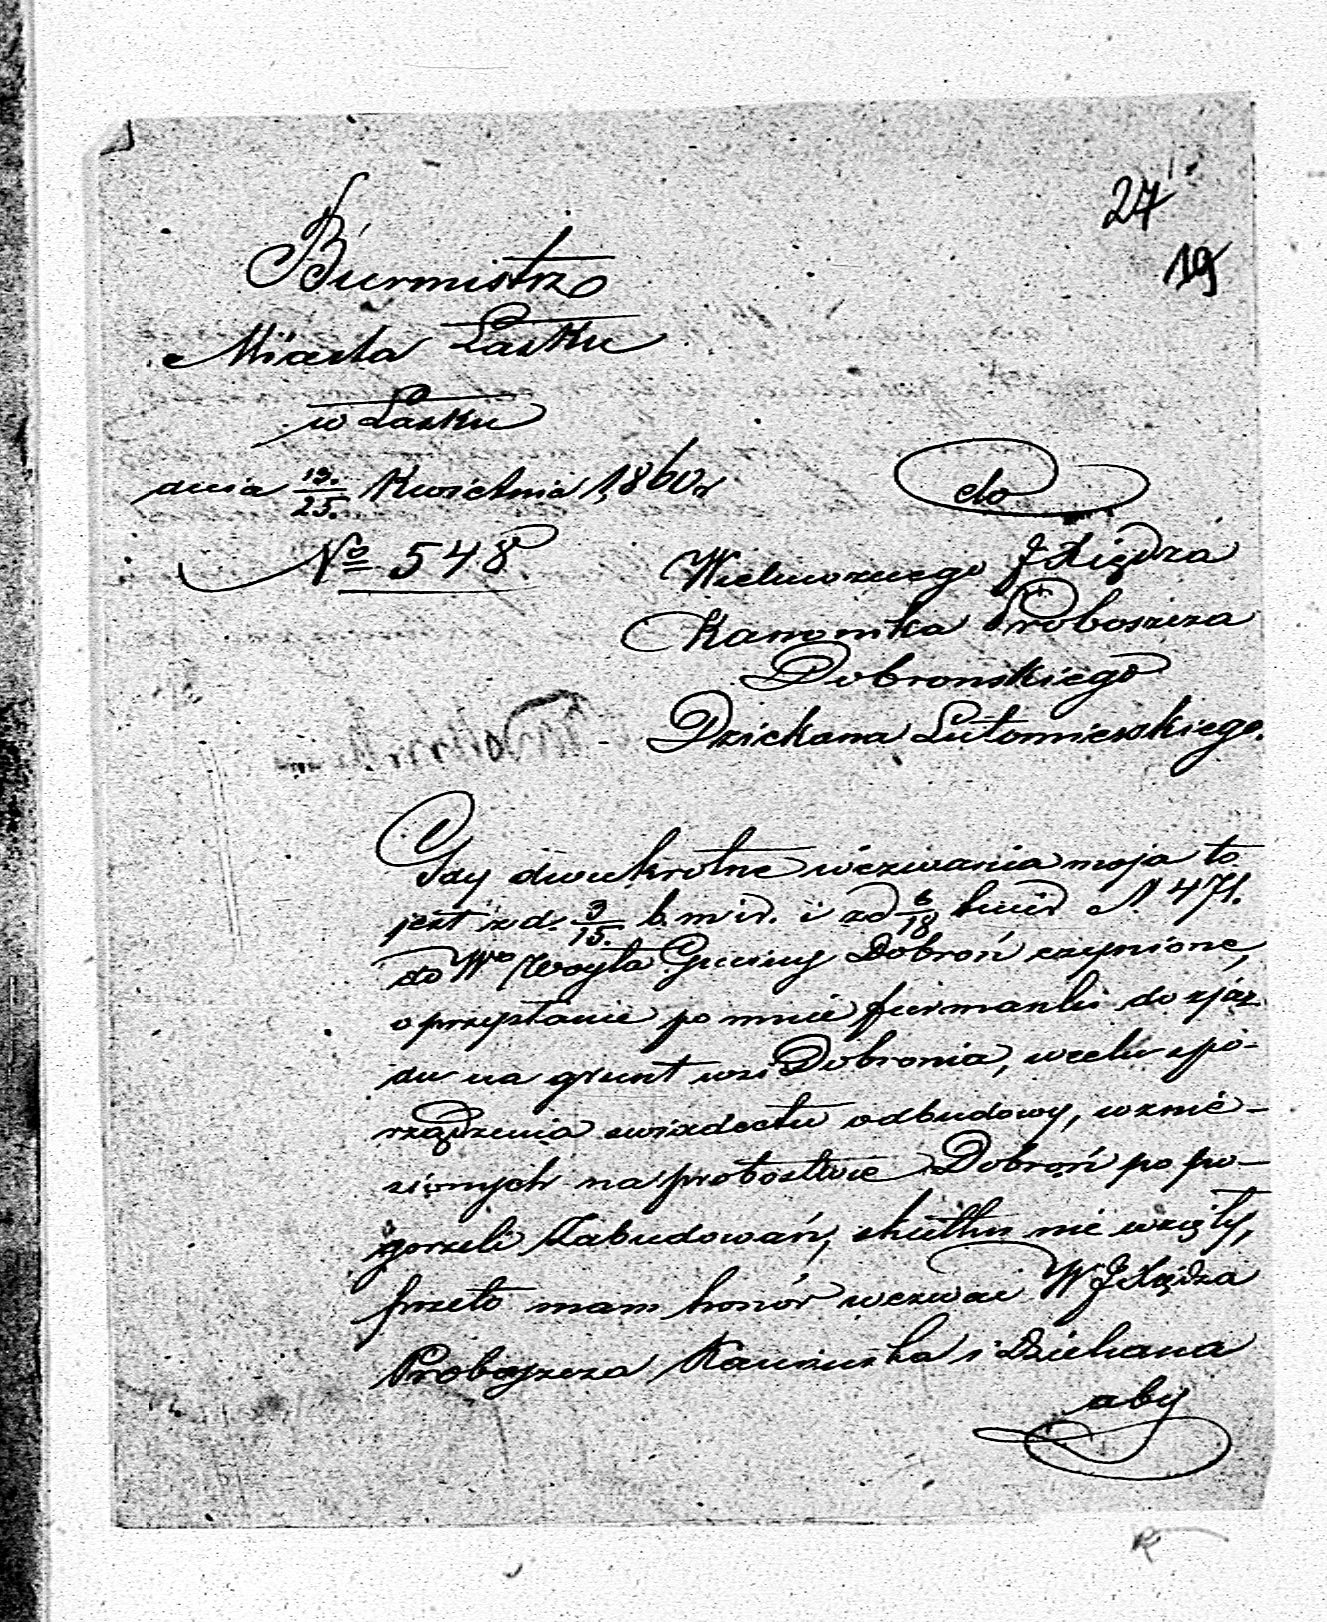 27
19
Burmistrz
Miasta Łasku
w Łasku
dnia 13./25. Kwietnia 1860 r
No 548
do
Wielmożnego JXiędza
Kanonika Proboszcza
Dobronskiego
Dziekana Lutomierskiego.
Gdy dwukrotne wezwania moja to
jest z d. 3/15. b. m i r. i z d 6/18 N. 471.
do Wo Wójta Gminy Dobroń czynione,
o przysłanie po mnie furmanki do zjaz
du na grunt wsi Dobronia, w celu spo-
rządzenia swiadectw odbudowy, wznie-
sionych na probostwie Dobroń po po-
gorzeli Zabudowań, skutku nie wzięły,
przeto mam honór wezwać WJXiędza
Proboszcza Kanonika i Dziekana
aby